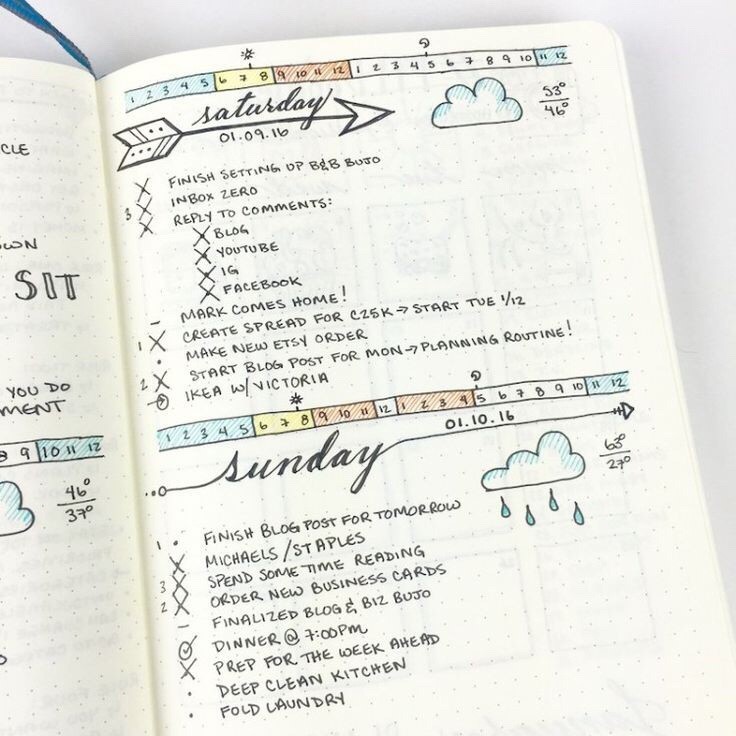 CLE
OWN
SIT
YOU DO
MENT
8 9 10 11 12
46°
37°
1 2 3 4 5 6 7 8 9 10 11 12 1 2 3 4 5 6 7 8 9 10 11 12
saturday
01.09.16
53°
46°
X FINISH SETTING UP B&B BUJO
3 X INBOX ZERO
X REPLY TO COMMENTS:
X BLOG
X YOUTUBE
X IG
X FACEBOOK
– MARK COMES HOME!
1 X CREATE SPREAD FOR C25K → START TUE 1/12
• MAKE NEW ETSY ORDER
2 X START BLOG POST FOR MON → PLANNING ROUTINE!
IKEA W/ VICTORIA
1 2 3 4 5 6 7 8 9 10 11 12 1 2 3 4 5 6 7 8 9 10 11 12
01.10.16
sunday
27°
1 • FINISH BLOG POST FOR TOMORROW
X MICHAELS/STAPLES
3 X SPEND SOME TIME READING
2 X ORDER NEW BUSINESS CARDS
– FINALIZED BLOG & BIZ BUJO
DINNER @ 7:00PM
X PREP FOR THE WEEK AHEAD
• DEEP CLEAN KITCHEN
• FOLD LAUNDRY